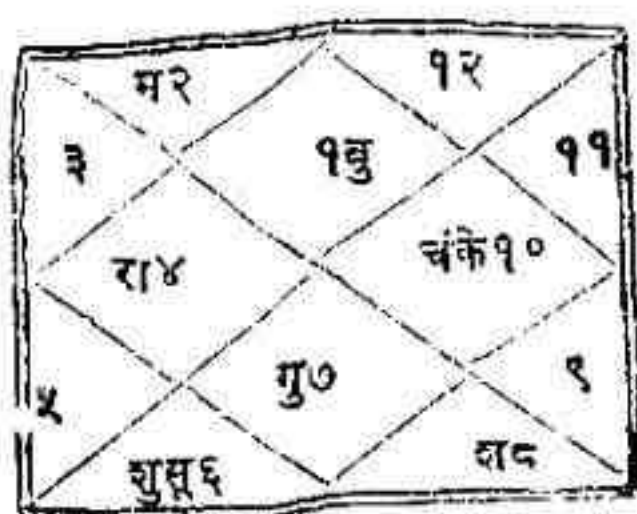 म२ १२
३ १बु ११
रा४ चंके१०
५ गु७ ९
शुसू६ श८